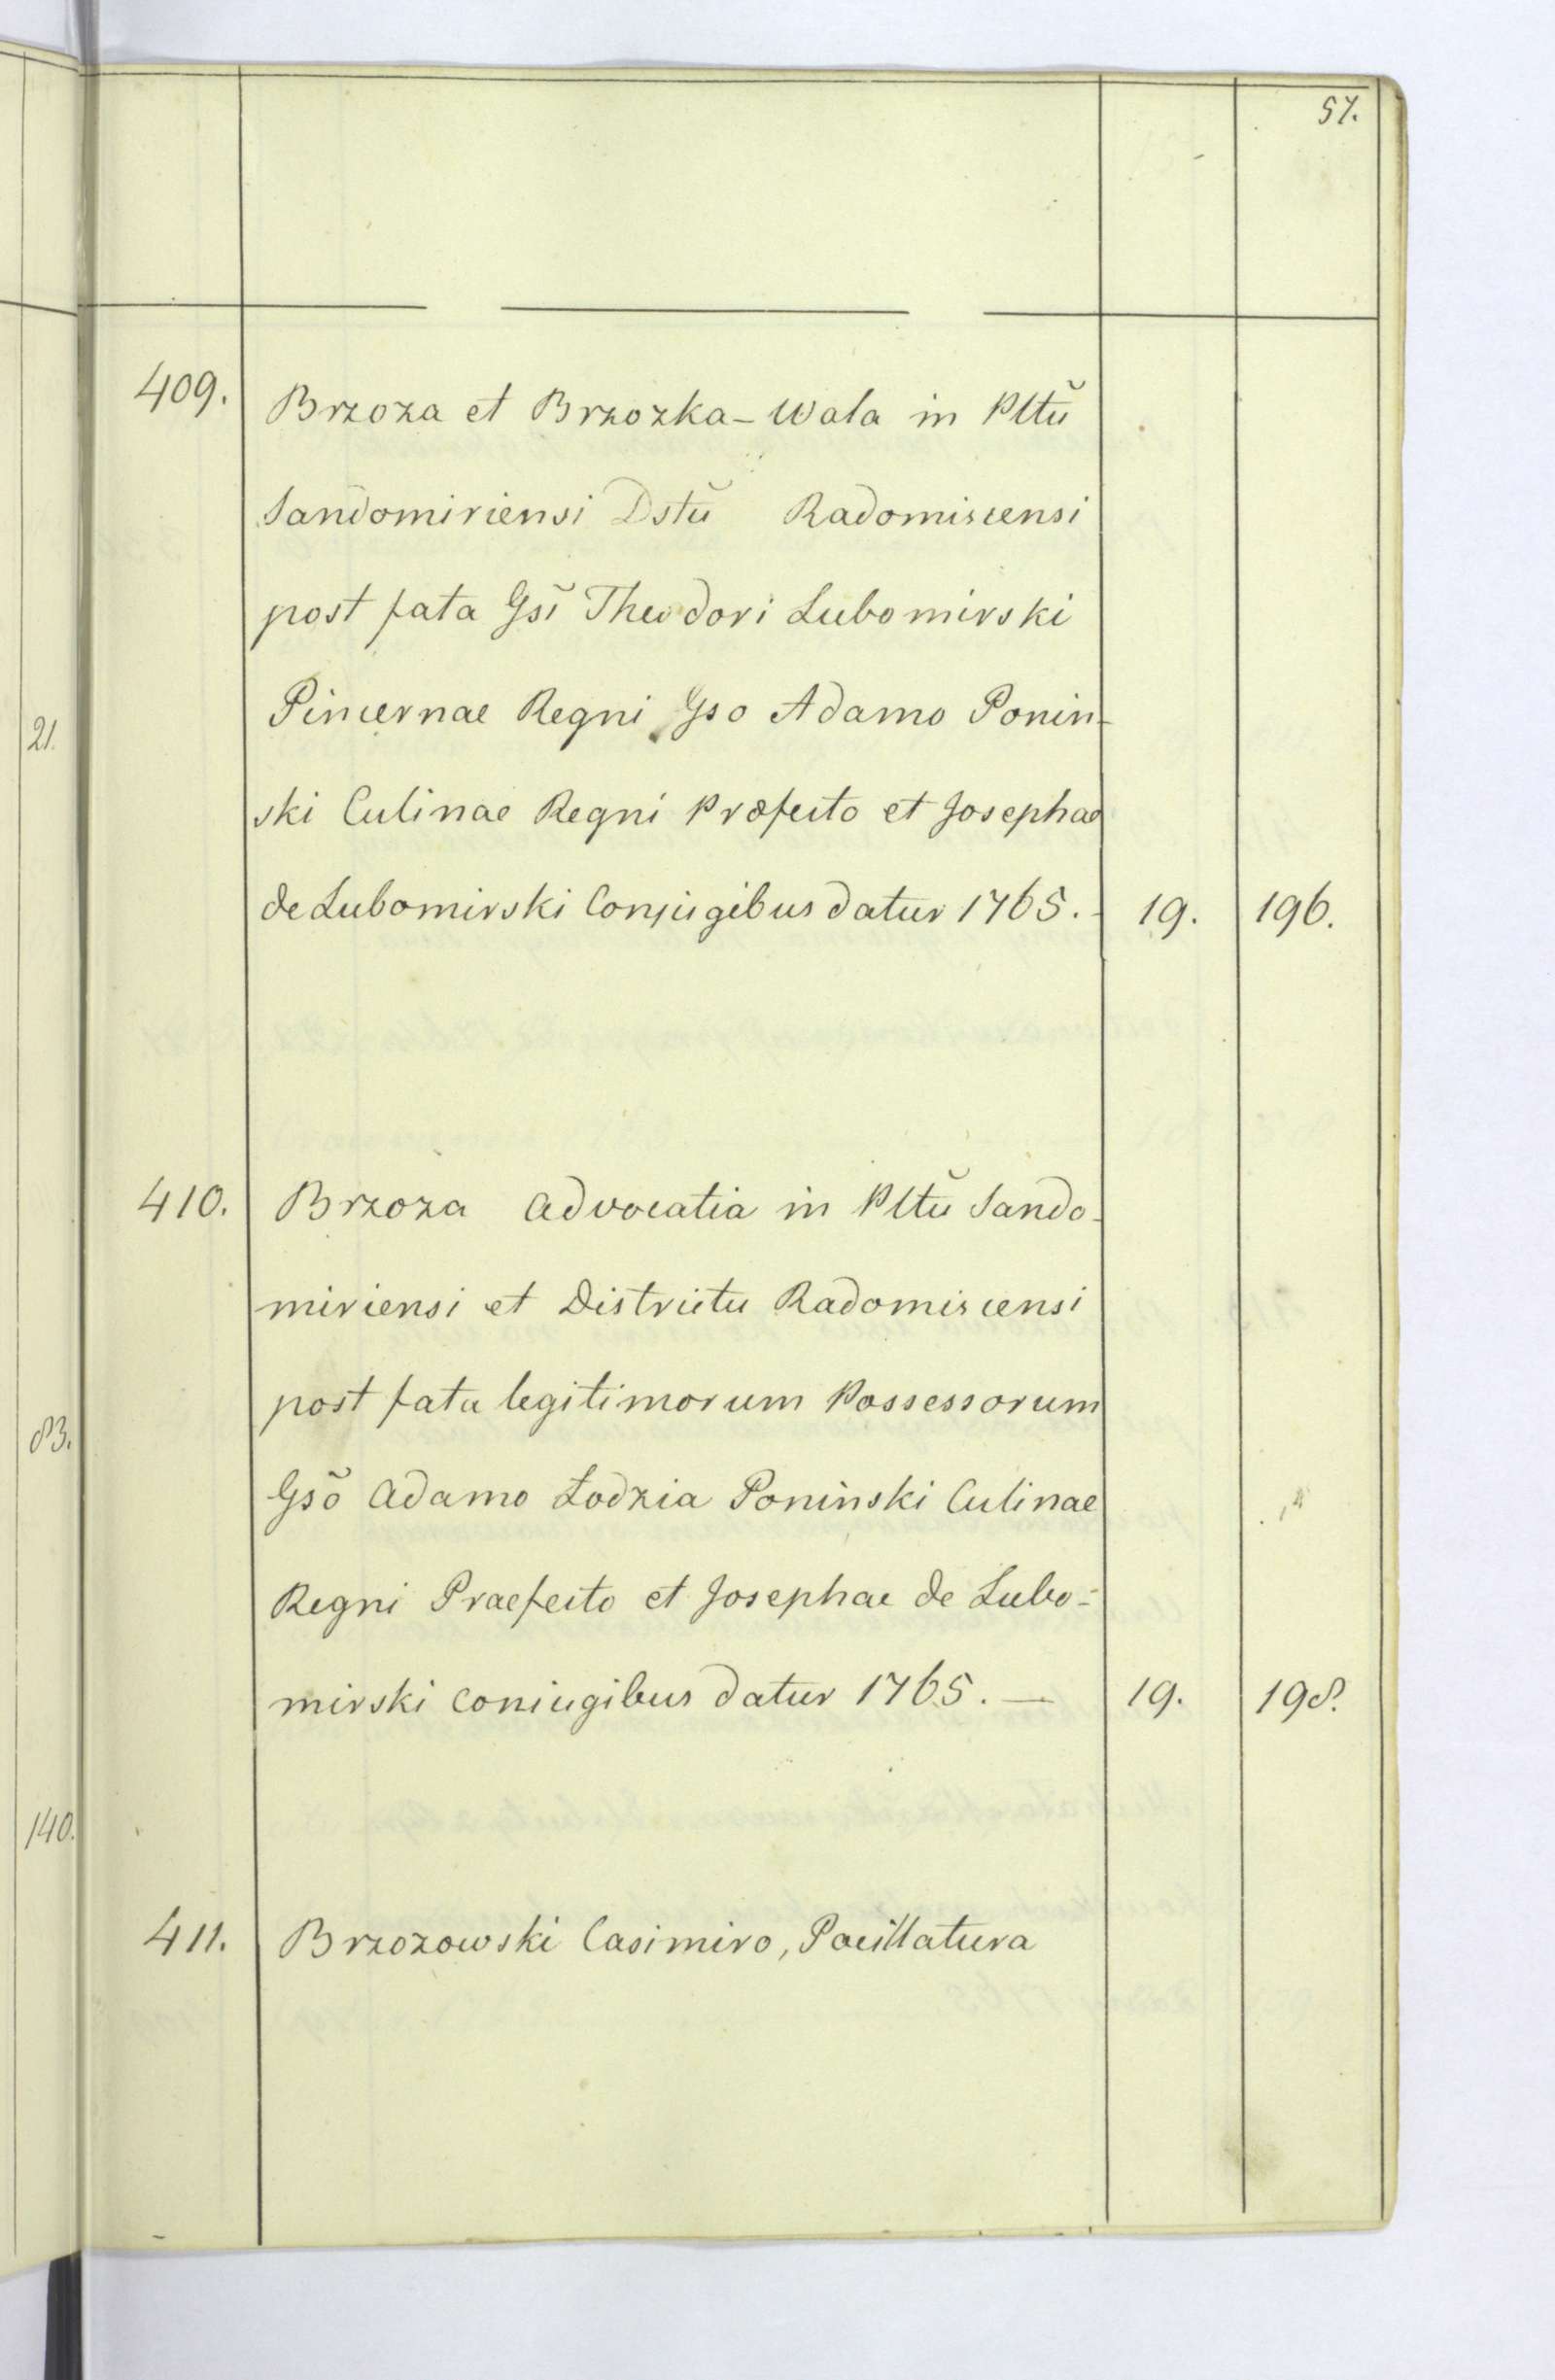 57.
409. Brzoza et Brzozka-Wala in Pltŭ
Sandomiriensi Dstŭ Radomiscensi
post fata Gsĭ Theodori Lubomirski
Pincernae Regni Gso Adamo Ponin-
ski Culinae Regni Præfecto et Josephae
de Lubomirski Conjugibus datur 1765. 19. 196.
410. Brzoza Advocatia in Pltŭ Sando-
miriensi et Districtu Radomiscensi
post fata legitimorum Possessorum
Gsõ Adamo Łodzia Poniński Culinae
Regni Praefecto et Josephae de Lubo-
mirski coniugibus datur 1765. — 19. 198.
411. Brzozowski Casimiro, Pocillatura
21.
83.
140.